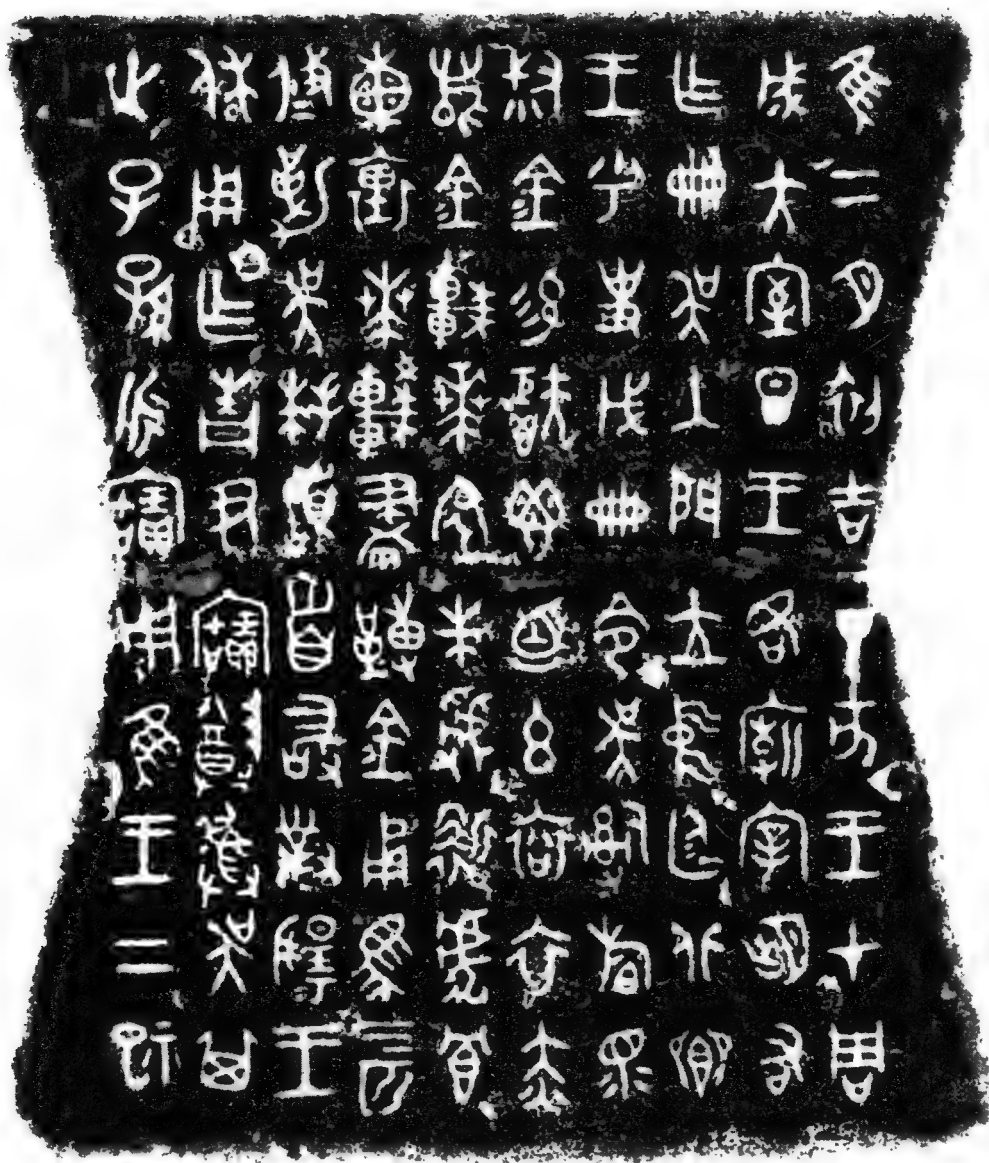 隹二月初吉丁亥王才周
成大室旦王各廟宰朏右
乍冊吳入門立中廷北鄉
王乎史戊冊令吳𤔲旃眔
叔金易秬鬯一卣玄袞衣赤
舄金車𠦪朱虢靳虎冟
熏裏𠦪較畫金甬馬四匹
攸勒吳拜𩒨首敢對揚王
休用乍青尹寶尊彝吳其
世子孫永寶用隹王二祀